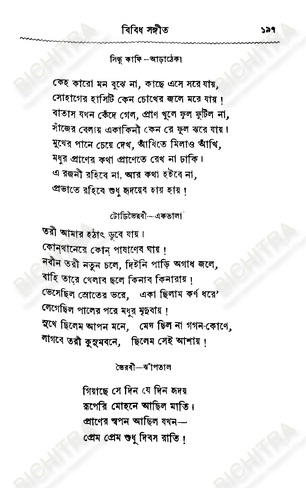 বিবিধ সঙ্গীত ১৯৭
সিন্ধু কাফি—আড়াঠেকা
কেহ কারো মন বুঝে না, কাছে এসে সরে যায়,
সোহাগের হাসিটি কেন চোখের জলে মরে যায় !
বাতাস যখন কেঁদে গেল, প্রাণ খুলে ফুল ফুটিল না,
সাঁজের বেলায় একাকিনী কেন রে ফুল ঝরে যায় ।
মুখের পানে চেয়ে দেখ, আঁখিতে মিলাও আঁখি,
মধুর প্রাণের কথা প্রাণেতে রেখ না ঢাকি ।
এ রজনী রহিবে না, আর কথা হইবে না,
প্রভাতে রহিবে শুধু হৃদয়ের হায় হায় !
টোড়িভৈরবী—একতালা
তরী আমার হঠাৎ ডুবে যায় ।
কোন্‌খানেরে কোন্ পাষাণের ঘায় !
নবীন তরী নতুন চলে, দিইনি পাড়ি অগাধ জলে,
বাহি তারে খেলার ছলে কিনার কিনারায় !
ভেসেছিল স্রোতের ভরে, একা ছিলাম কর্ণ ধরে’
লেগেছিল পালের পরে মধুর মৃদুবায় !
সুখে ছিলেম আপন মনে, মেঘ ছিল না গগন-কোণে,
লাগবে তরী কুসুমবনে, ছিলেম সেই আশায় !
ভৈরবী—ঝাঁপতাল
গিয়াছে সে দিন যে দিন হৃদয়
রূপেরি মোহনে আছিল মাতি ।
প্রাণের স্বপন আছিল যখন—
প্রেম প্রেম শুধু দিবস রাতি !
BICHITRA